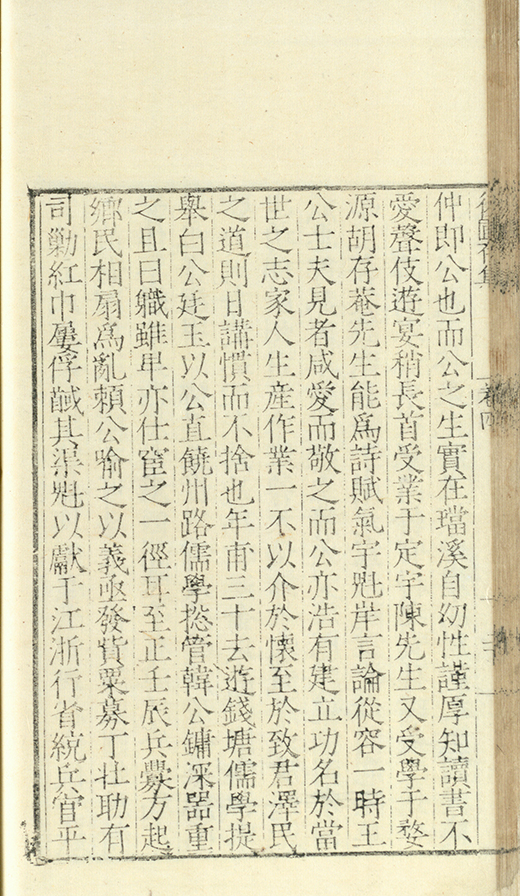 卷四
仲即公也而公之生實在璫溪自幼性謹厚知讀書不
愛聲伎遊宴稍長首受業于定宇陳先生又受學于婺
源胡存菴先生能爲詩賦氣宇魁岸言論從容一時王
公士夫見者咸愛而敬之而公亦浩有建立功名於當
世之志家人生產作業一不以介於懷至於致君澤民
之道則日講慣而不捨也年甫三十去遊錢塘儒學提
舉白公廷玉以公直饒州路儒學揔管韓公鏞深器重
之且曰職雖卑亦仕宦之一徑耳至正壬辰兵釁方起
鄉民相扇爲亂賴公喻之以義亟發貲粟募丁壯助有
司勦紅巾屢俘馘其渠魁以獻于江浙行省統兵官平